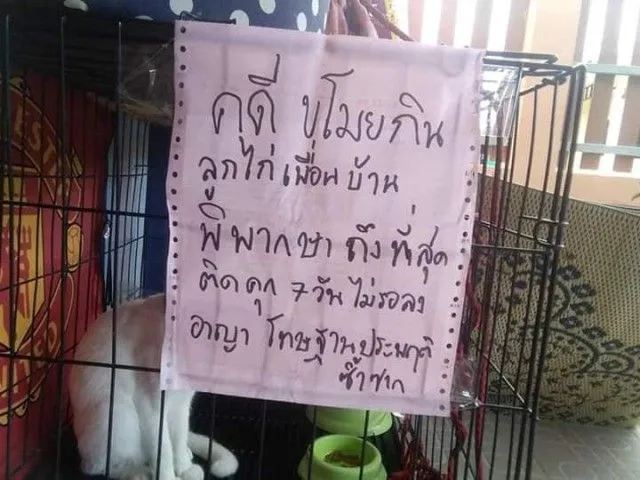 คดี ขโมยกิน
ลูกไก่เพื่อนบ้าน
พิพากษา ถึงที่สุด
ติดคุก 7 วัน ไม่รอลง
อาญา โทษฐานประพฤติ
ซ้ำซาก